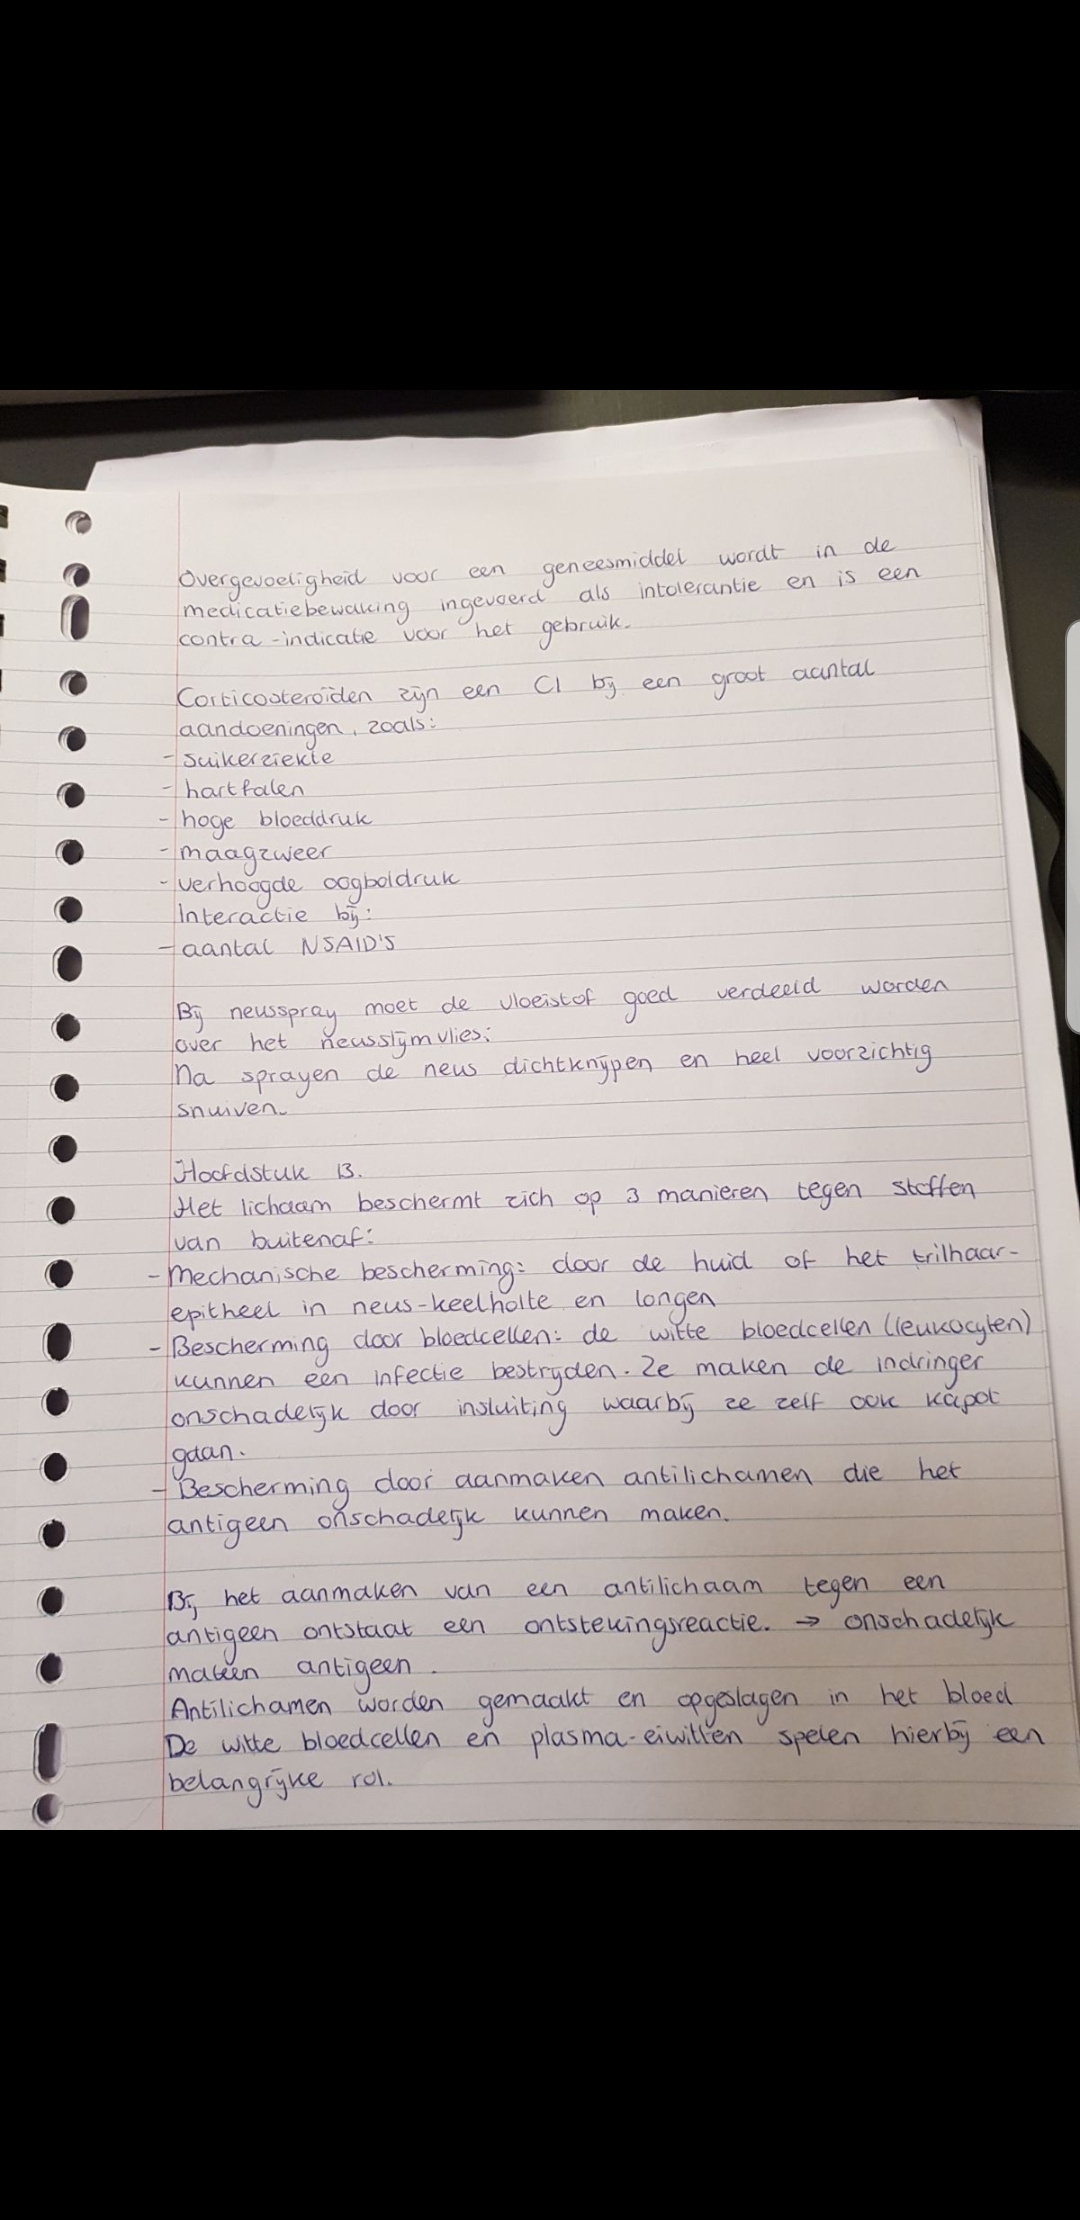 Overgevoeligheid voor een geneesmiddel wordt in de
medicatiebewaking ingevoerd als intolerantie en is een
contra-indicatie voor het gebruik.
Corticosteroïden zijn een CI bij een groot aantal
aandoeningen, zoals:
- suikerziekte
- hartfalen
- hoge bloeddruk
- maagzweer
- verhoogde oogboldruk
Interactie bij:
- aantal NSAID'S
Bij neusspray moet de vloeistof goed verdeeld worden
over het neusslijmvlies:
Na sprayen de neus dichtknijpen en heel voorzichtig
snuiven.
Hoofdstuk 13.
Het lichaam beschermt zich op 3 manieren tegen stoffen
van buitenaf:
- Mechanische bescherming: door de huid of het trilhaar-
epitheel in neus-keelholte en longen
- Bescherming door bloedcellen: de witte bloedcellen (leukocyten)
kunnen een infectie bestrijden. Ze maken de indringer
onschadelijk door insluiting waarbij ze zelf ook kapot
gaan.
- Bescherming door aanmaken antilichamen die het
antigeen onschadelijk kunnen maken.
Bij het aanmaken van een antilichaam tegen een
antigeen ontstaat een ontstekingsreactie. → onschadelijk
maken antigeen.
Antilichamen worden gemaakt en opgeslagen in het bloed
De witte bloedcellen en plasma-eiwitten spelen hierbij een
belangrijke rol.